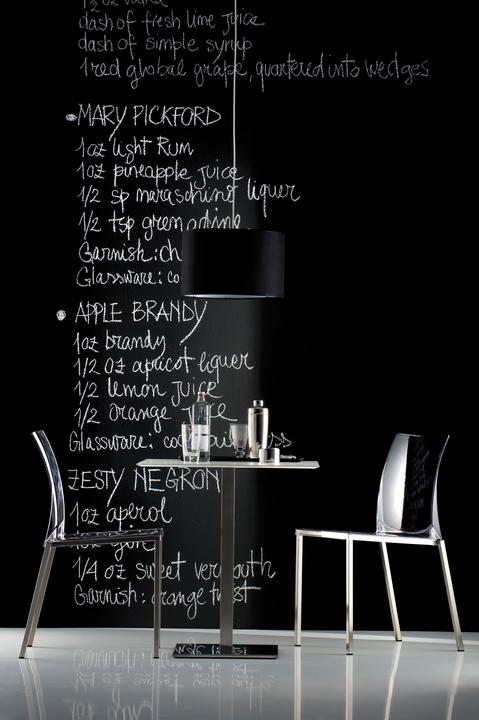 vodka
dash of fresh lime juice
dash of simple syrup
1 red global grape, quartered into wedges
MARY PICKFORD
1oz light Rum
1oz pineapple juice
1/2 sp maraschino liquer
1/2 tsp grenadine
Garnish: ch
Glassware: co
APPLE BRANDY
1oz brandy
1/2 oz apricot liquer
1/2 lemon juice
1/2 orange juice
Glassware: cocktail
ZESTY NEGRON
1oz aperol
1oz gin
1/4 oz sweet vermouth
Garnish: orange twist